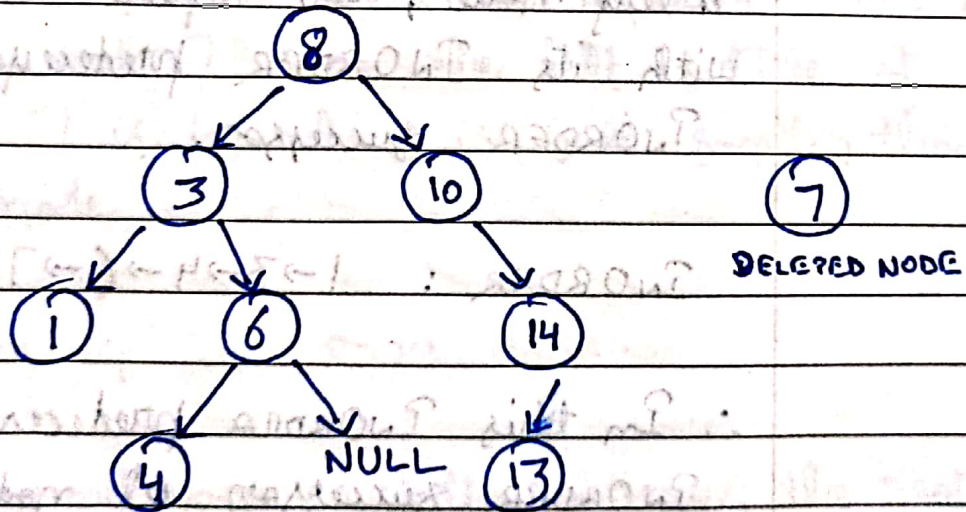 8
3 10 7
DELETED NODE
1 6 14
4 NULL 13